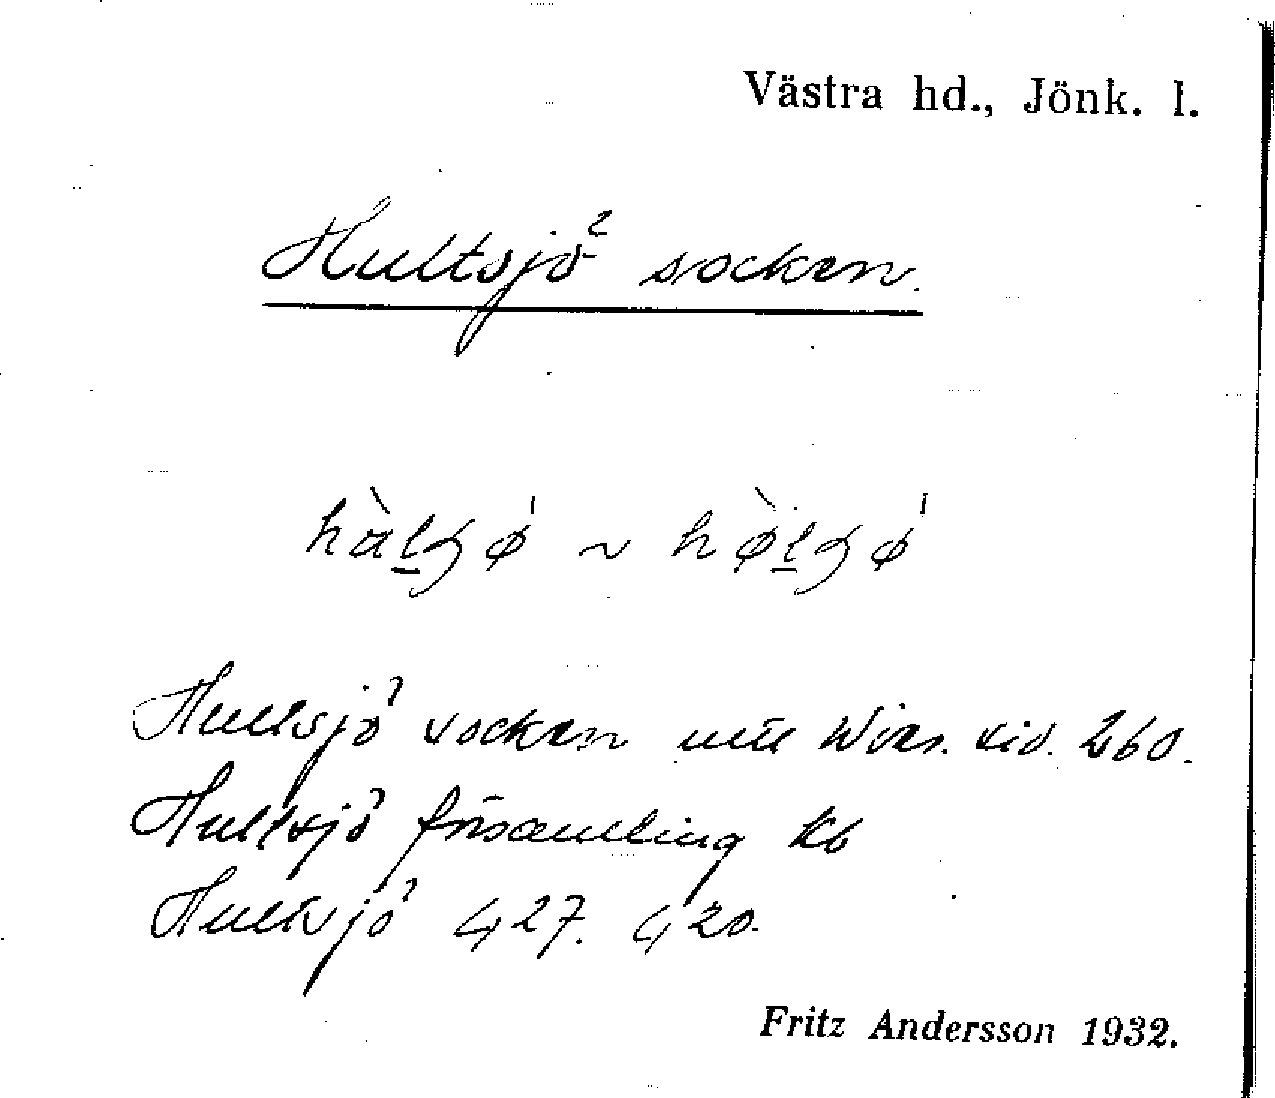 Västra hd., Jönk. l.
Hultsjö socken.
Hultsjö socken Wies. sid. 260.
Hultsjö församling Kb
Hultsjö G 27. G 20.
Fritz Andersson 1932.